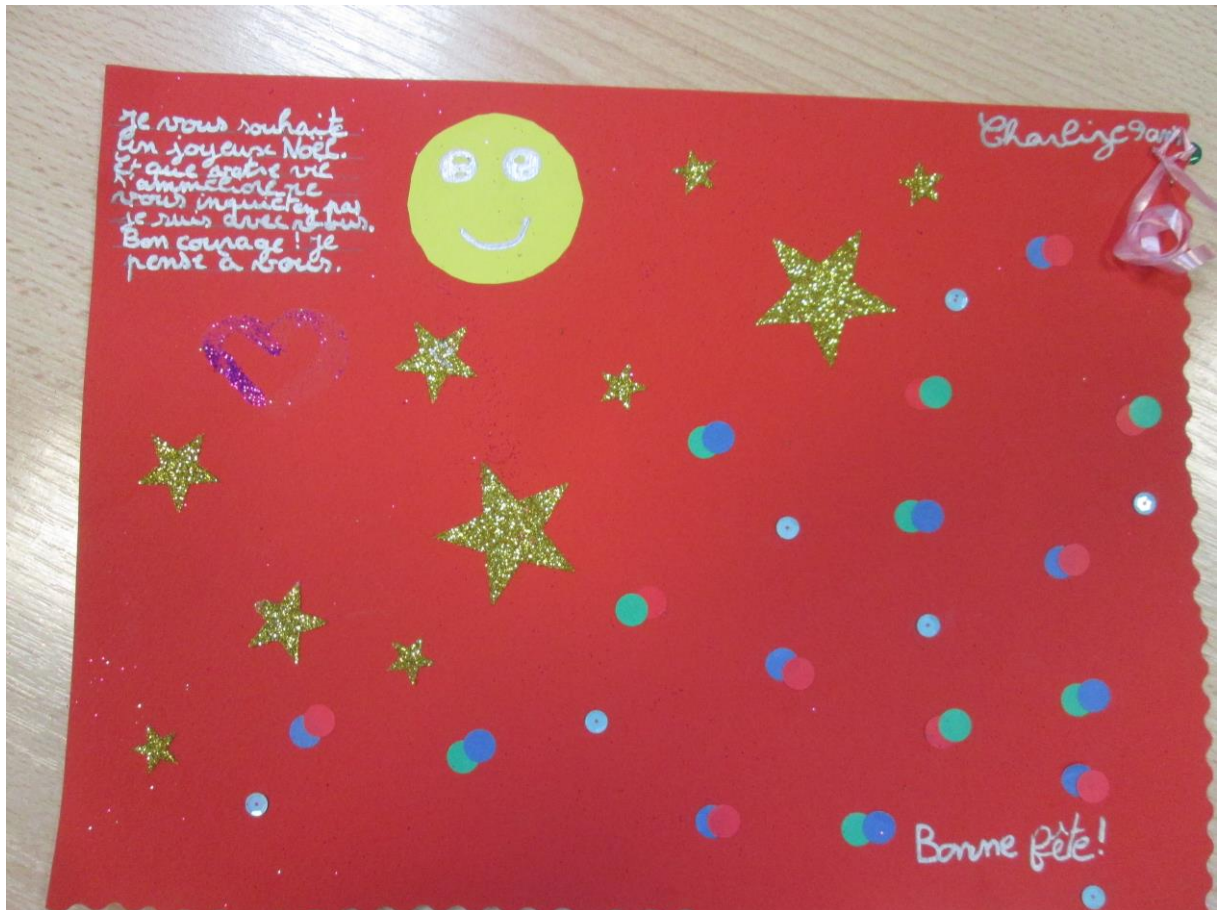 Je vous souhaite
un joyeux Noël.
Et que votre vie
s'ammeliore ne
vous inquietez pas
je suis avec vous.
Bon courage ! Je
pense à vous.
Charlize 9ans
Bonne fête!